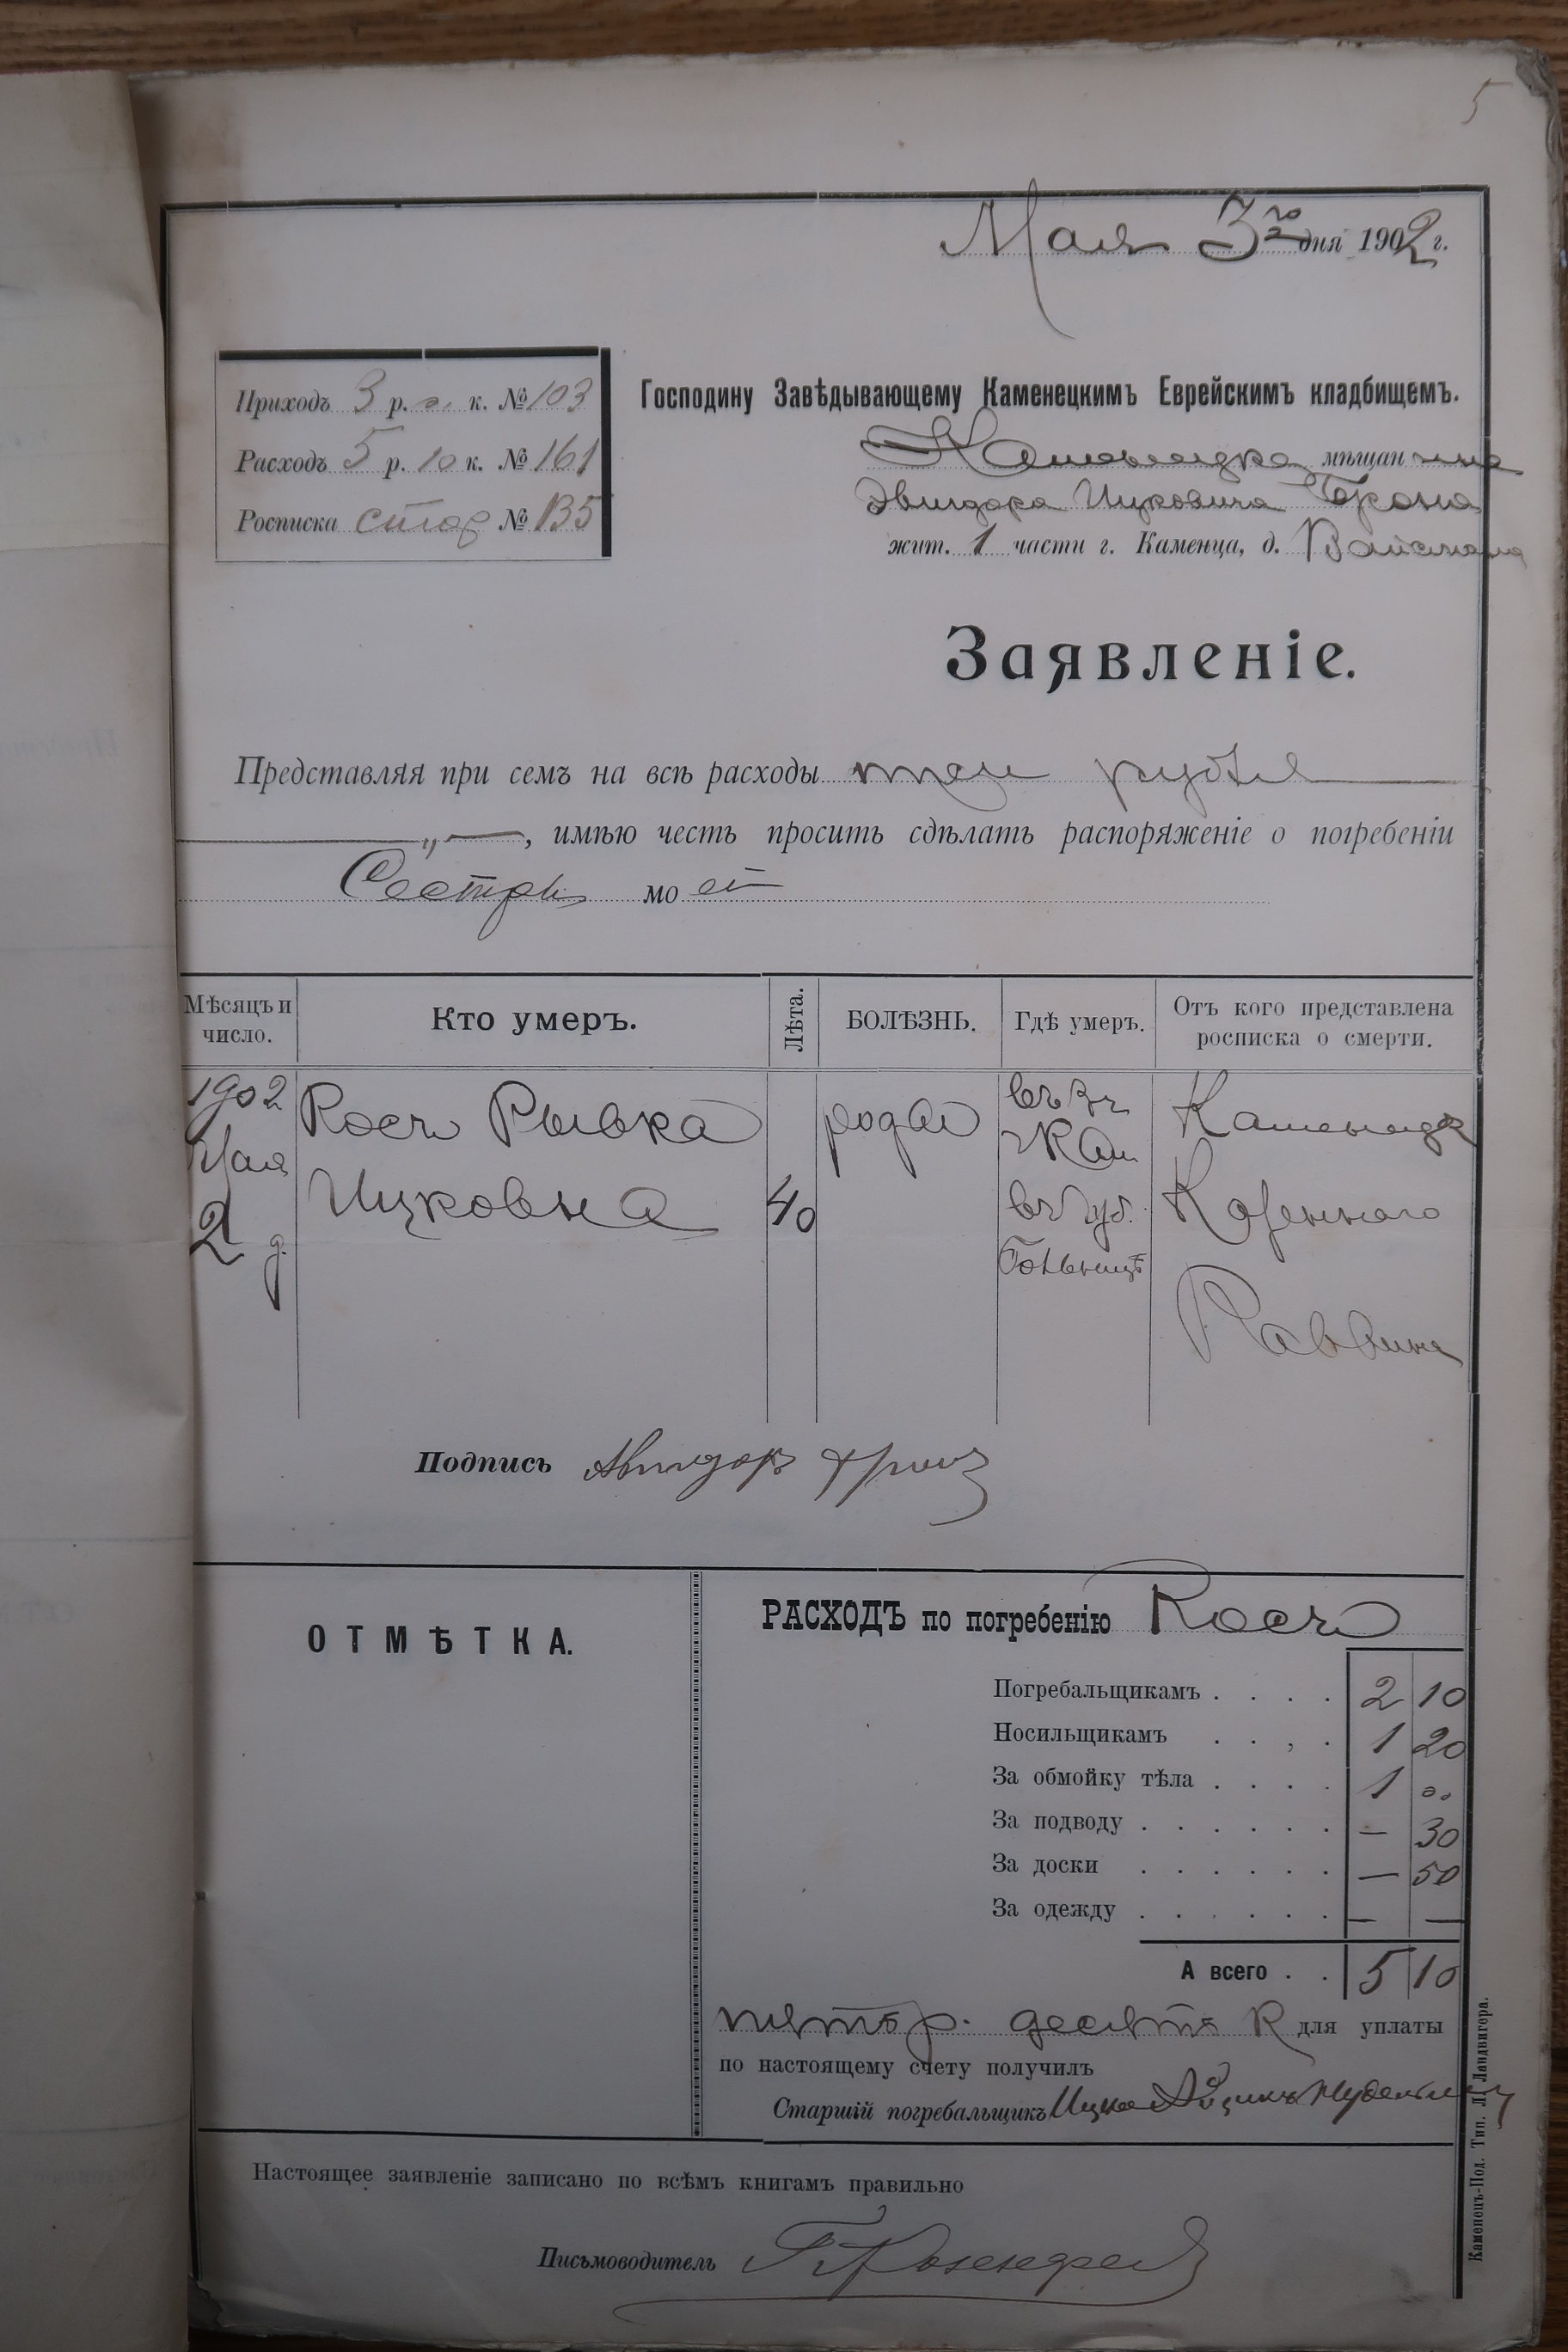 5
Мая 3го дня 1902 г.
Приходъ 3 р. к. № 103
Расходъ 5 р. 10 к. № 161
Росписка № 135
Господину Завѣдывающему Каменецкимъ Еврейскимъ кладбищемъ.
мѣщанина
Ицковича
жит. 1 части г. Каменца, д. Вайсмана
Заявленіе.
Представляя при семъ на всѣ расходы три рубля
„ , имѣю честь просить сдѣлать распоряженіе о погребеніи
Сестры моей
Мѣсяцъ и число.
Кто умеръ.
Лѣта.
БОЛѢЗНЬ.
Гдѣ умеръ.
Отъ кого представлена росписка о смерти.
1902
Мая
2 д.
Рывка
Ицковна
40
роды
въ
въ губ.
больницѣ
Казеннаго
Раввина
Подпись
ОТМѢТКА.
РАСХОДЪ по погребенію
Погребальщикамъ . . . . 2 10
Носильщикамъ . . , . 1 20
За обмойку тѣла . . . . 1 00
За подводу . . . . . . — 30
За доски . . . . . . — 50
За одежду . . . . . . — —
А всего . . 5 10
пять р. десять к для уплаты
по настоящему счету получилъ
Старшій погребальщикъ Ицко
Настоящее заявленіе записано по всѣмъ книгамъ правильно
Письмоводитель
Каменецъ-Под. Тип. Л. Ландвигера.